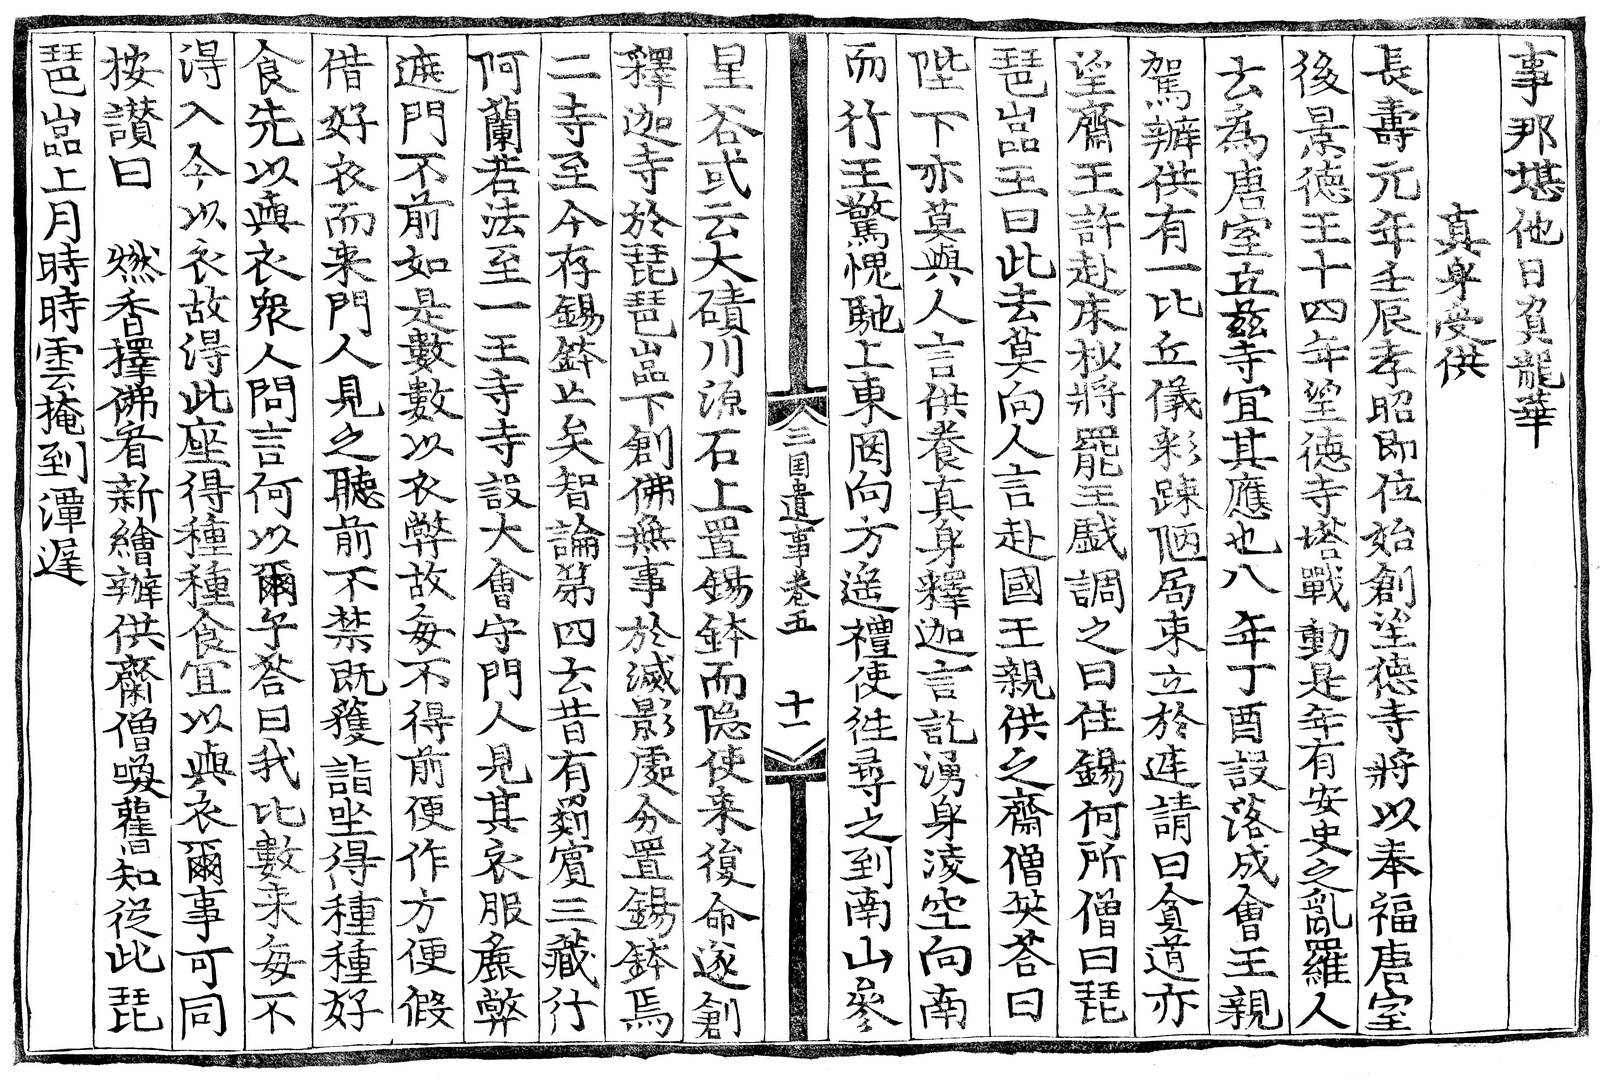 事那堪他日負龍華
真身受供
長壽元年壬辰孝昭即位始創望德寺將以奉福唐室
後景德王十四年望德寺塔戰動是年有安史之亂羅人
云爲唐室立玆寺宜其應也八年丁酉設落成會王親
駕辦供有一比丘儀彩踈陋局束立於庭請曰貧道亦
望齋王許赴床杪將罷王戱調之曰住錫何所僧曰琵
琶嵓王曰此去莫向人言赴國王親供之齋僧笑荅曰
陛下亦莫與人言供養真身釋迦言訖湧身淩空向南
而行王驚愧馳上東岡向方遥禮使徃尋之到南山叅
三囯遺事卷五 十一
星谷或云大磧川源石上置錫鉢而隠使来復命遂創
釋迦寺於琵琶嵓下創佛無事於滅影處分置錫鉢焉
二寺至今存錫鉢亡矣智論第四云昔有罽賓三藏行
阿蘭若法至一王寺寺設大會守門人見其衣服麁弊
遮門不前如是數數以衣弊故每不得前便作方便假
借好衣而来門人見之聽前不禁既獲詣坐得種種好
食先以與衣衆人問言何以爾乎荅曰我比數来每不
得入今以衣故得此座得種種食宜以與衣爾事可同
按讃曰 燃香擇佛看新繪辦供齋僧喚舊知從此琵
琶嵓上月時時雲掩到潭遅